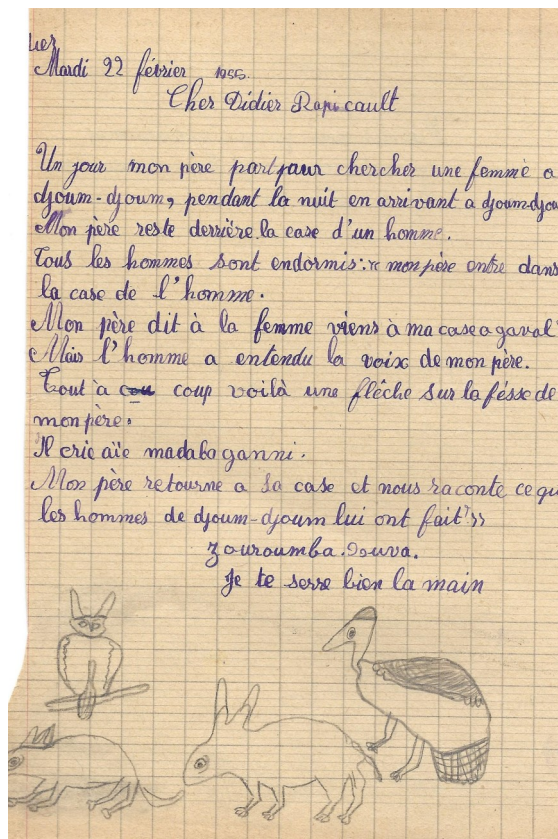 Mardi 22 février 1955.
Cher Didier Rapicault
Un jour mon père part pour chercher une femme a
djoum-djoum, pendant la nuit en arrivant a djoum-djou
Mon père reste derrière la case d'un homme.
Tous les hommes sont endormis: « mon père entre dans
la case de l'homme.
Mon père dit à la femme viens à ma case a gaval
Mais l'homme a entendu la voix de mon père.
Tout à coup voilà une flêche sur la fésse de
mon père.
Il crie aïe madaba ganni.
Mon père retourne a sa case et nous raconte ce qu
les hommes de djoum-djoum lui ont fait »
Zouroumba. Douva.
Je te serre bien la main